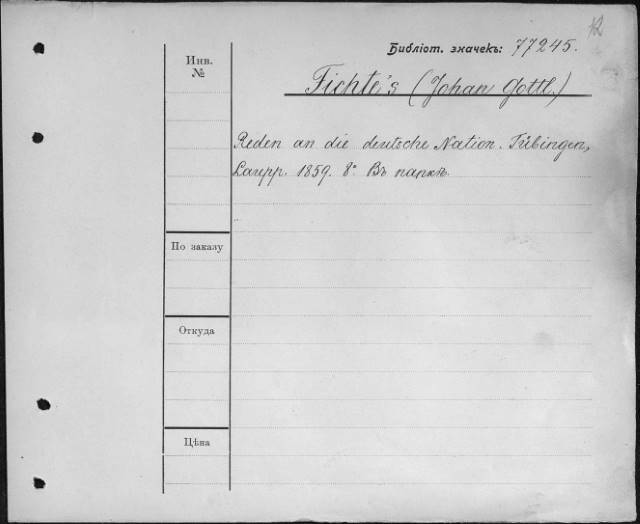 12
Библіот. значекъ: 77245.
Инв. №
Fichte's (Johan Gottl.)
Reden an die deutsche Nation. Tübingen,
Laupp. 1859. 8° Въ папкѣ.
По заказу
Откуда
Цѣна